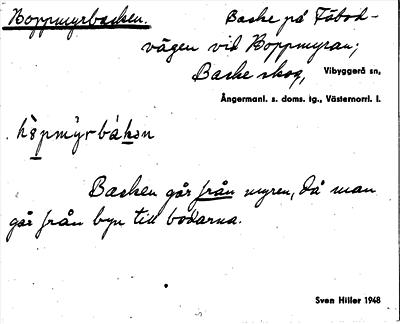 Koppmyrbacken. Backe på Fäbod-
vägen vid Koppmyran;
Backe skog, Vibyggerå sn,
Ångermanl. s. doms. tg., Västernorrl. l.
Backen går från myren, då man
går från byn till bodarna.
Sven Hiller 1948